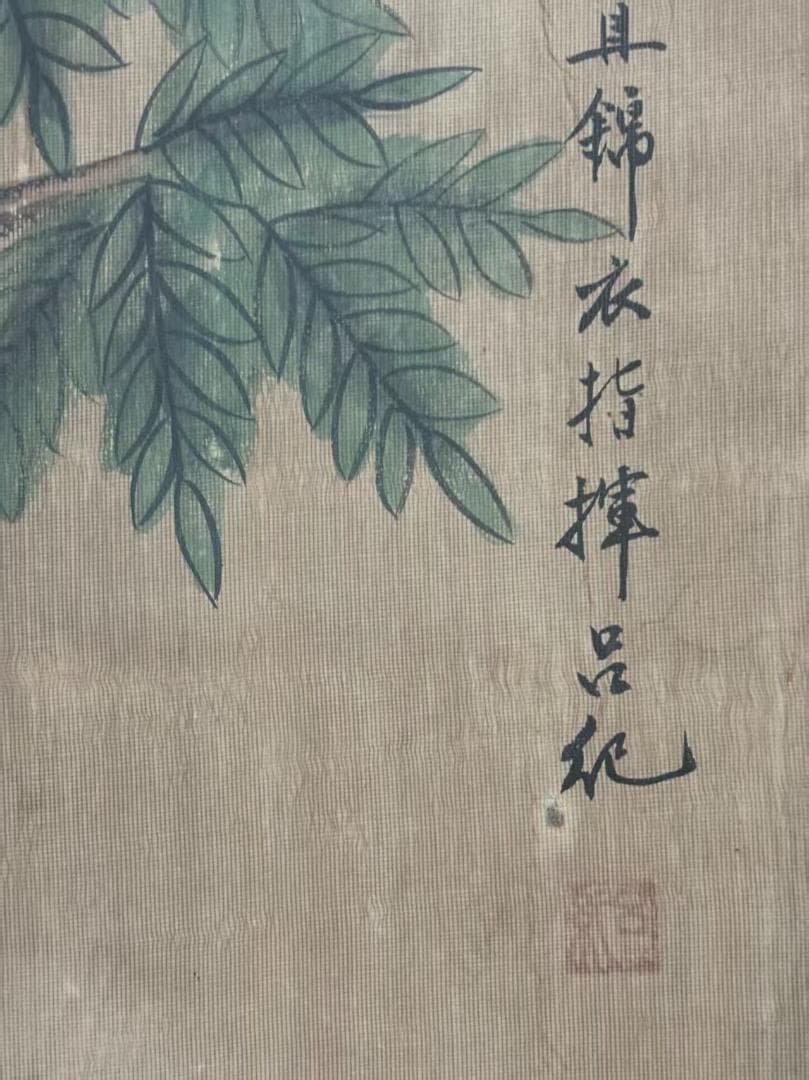 錦衣指揮呂紀